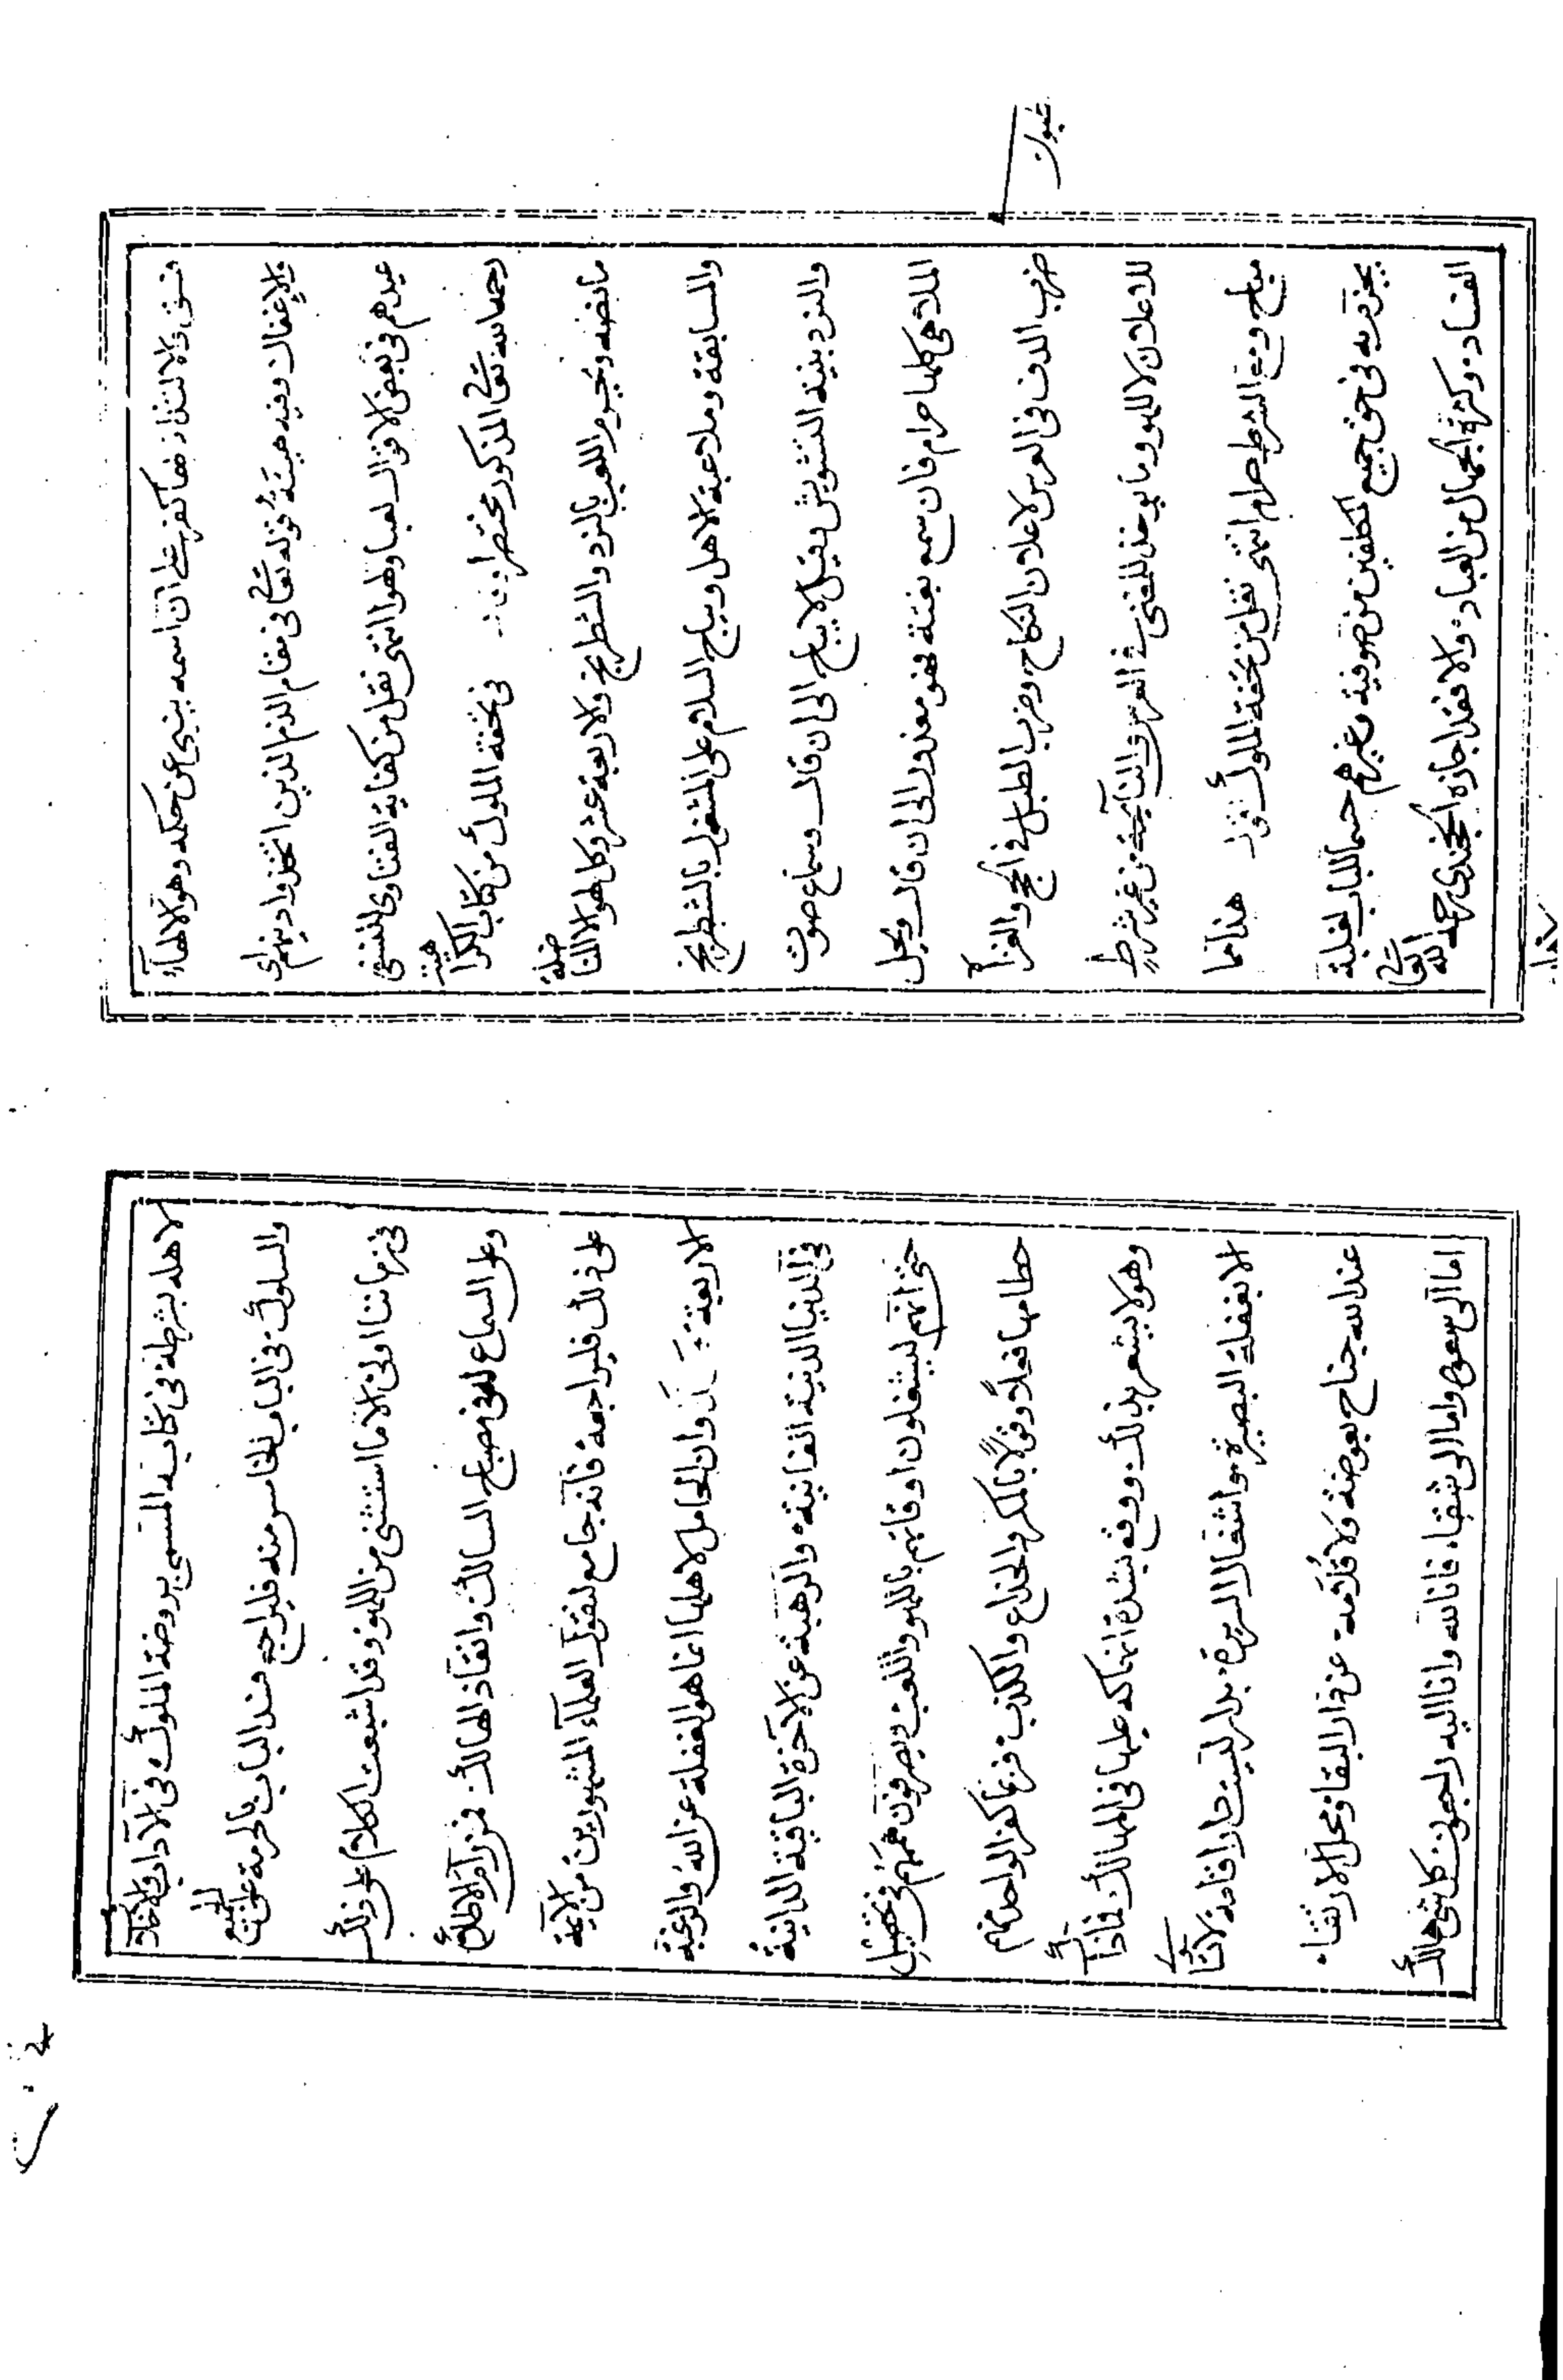 فسق والالتذاذ بها كفر على ان اسمه ينبئ عن حكمه وهو الالهآء
والاغفال وفيه حينئذ قوله تعالى في مقام الذم الذين اتخذوا دينهم اى
عيدهم في بعض الاقوال لعبا ولهوا انتهى نقل من كفاية الفتاوى للنسفى
رحمه الله تعالى المذكور مختصرا في تحفة الملوك من كتاب الكراهية
ما نصه ويحرم اللعب بالنرد والشطرنج والاربعة عشر وكل لهو الا المناضلة
والمسابقة وملاعبة الاهل ويباح السلام على المشتغل بالشطرنج
والنرد بنية التشويش وقيل لا يباح الى ان قال وسماع صوت
الملاهى كلها حرام فان سمع بغتة فهو معذور الى ان قال ويحل
ضرب الدف في العرس لاعلان النكاح وضرب الطبل في الحج والغزاة
للاعلان لا للهو وما يوخذ للمغنى في العرس والنائحة من غير شرط
مباح ومع الشرط حرام انتهى نقل من تحفة الملوك اقول هذا مما
يجزم به في حق جميع المكلفين من صوفية وغيرهم حسما للباب لغلبة
الفساد وكثرة الجهال من العباد والا فقد اجازه الخجندى رحمه الله تعالى
لاهله بشرطه في كتابه المسمى بروضة الملوك في الآداب والاخلاق
والسلوك في الباب الخامس منه فليراجع فسد الباب بالحرمة على الجميع
في زماننا اولى الا ما استثنى من اللهو وقد اشبعت الكلام على ذلك
وعلى السماع للغنى مصباح السالك وانقاذ الهالك فمن رام الاطلاع
على ذلك فليراجعه فانه جامع لنقول العلمآء المشهورين من الائمة
الاربعة وان الحامل لاهلها انما هو الغفلة عن الله والرغبة
في الدنيا الدنية الفانية والرهبة عن الاخرة الباقية الدانية
حتى انهم ليشغلون اوقاتهم باللهو واللعب ويصرفون هممهم في تحصيل
حطامها فعلاً وقولاً بالمكر والخداع والكذب فربما كفر الواحد منهم
وهو لا يشعر بذلك ووقع بشدة انهماكه عليها في المهالك فما ذا
الا بغفلة البصيرة سوا شغالا السريرة بدار ليست دار اقامة لا تساوى
عند الله جناح بعوضة ولا قلامة عن دار البقا ومحل الارتقاء
اما الى سعود واما الى شقاء فانا لله وانا اليه راجعون كل شئ هالك